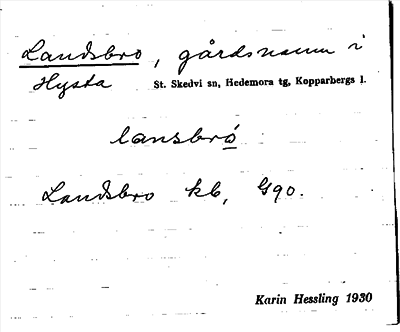 Landsbro, gårdsnamn i
Hysta St. Skedvi sn, Hedemora tg, Kopparbergs l.
lansbrò
Landsbro kb, G90.
Karin Hessling 1930